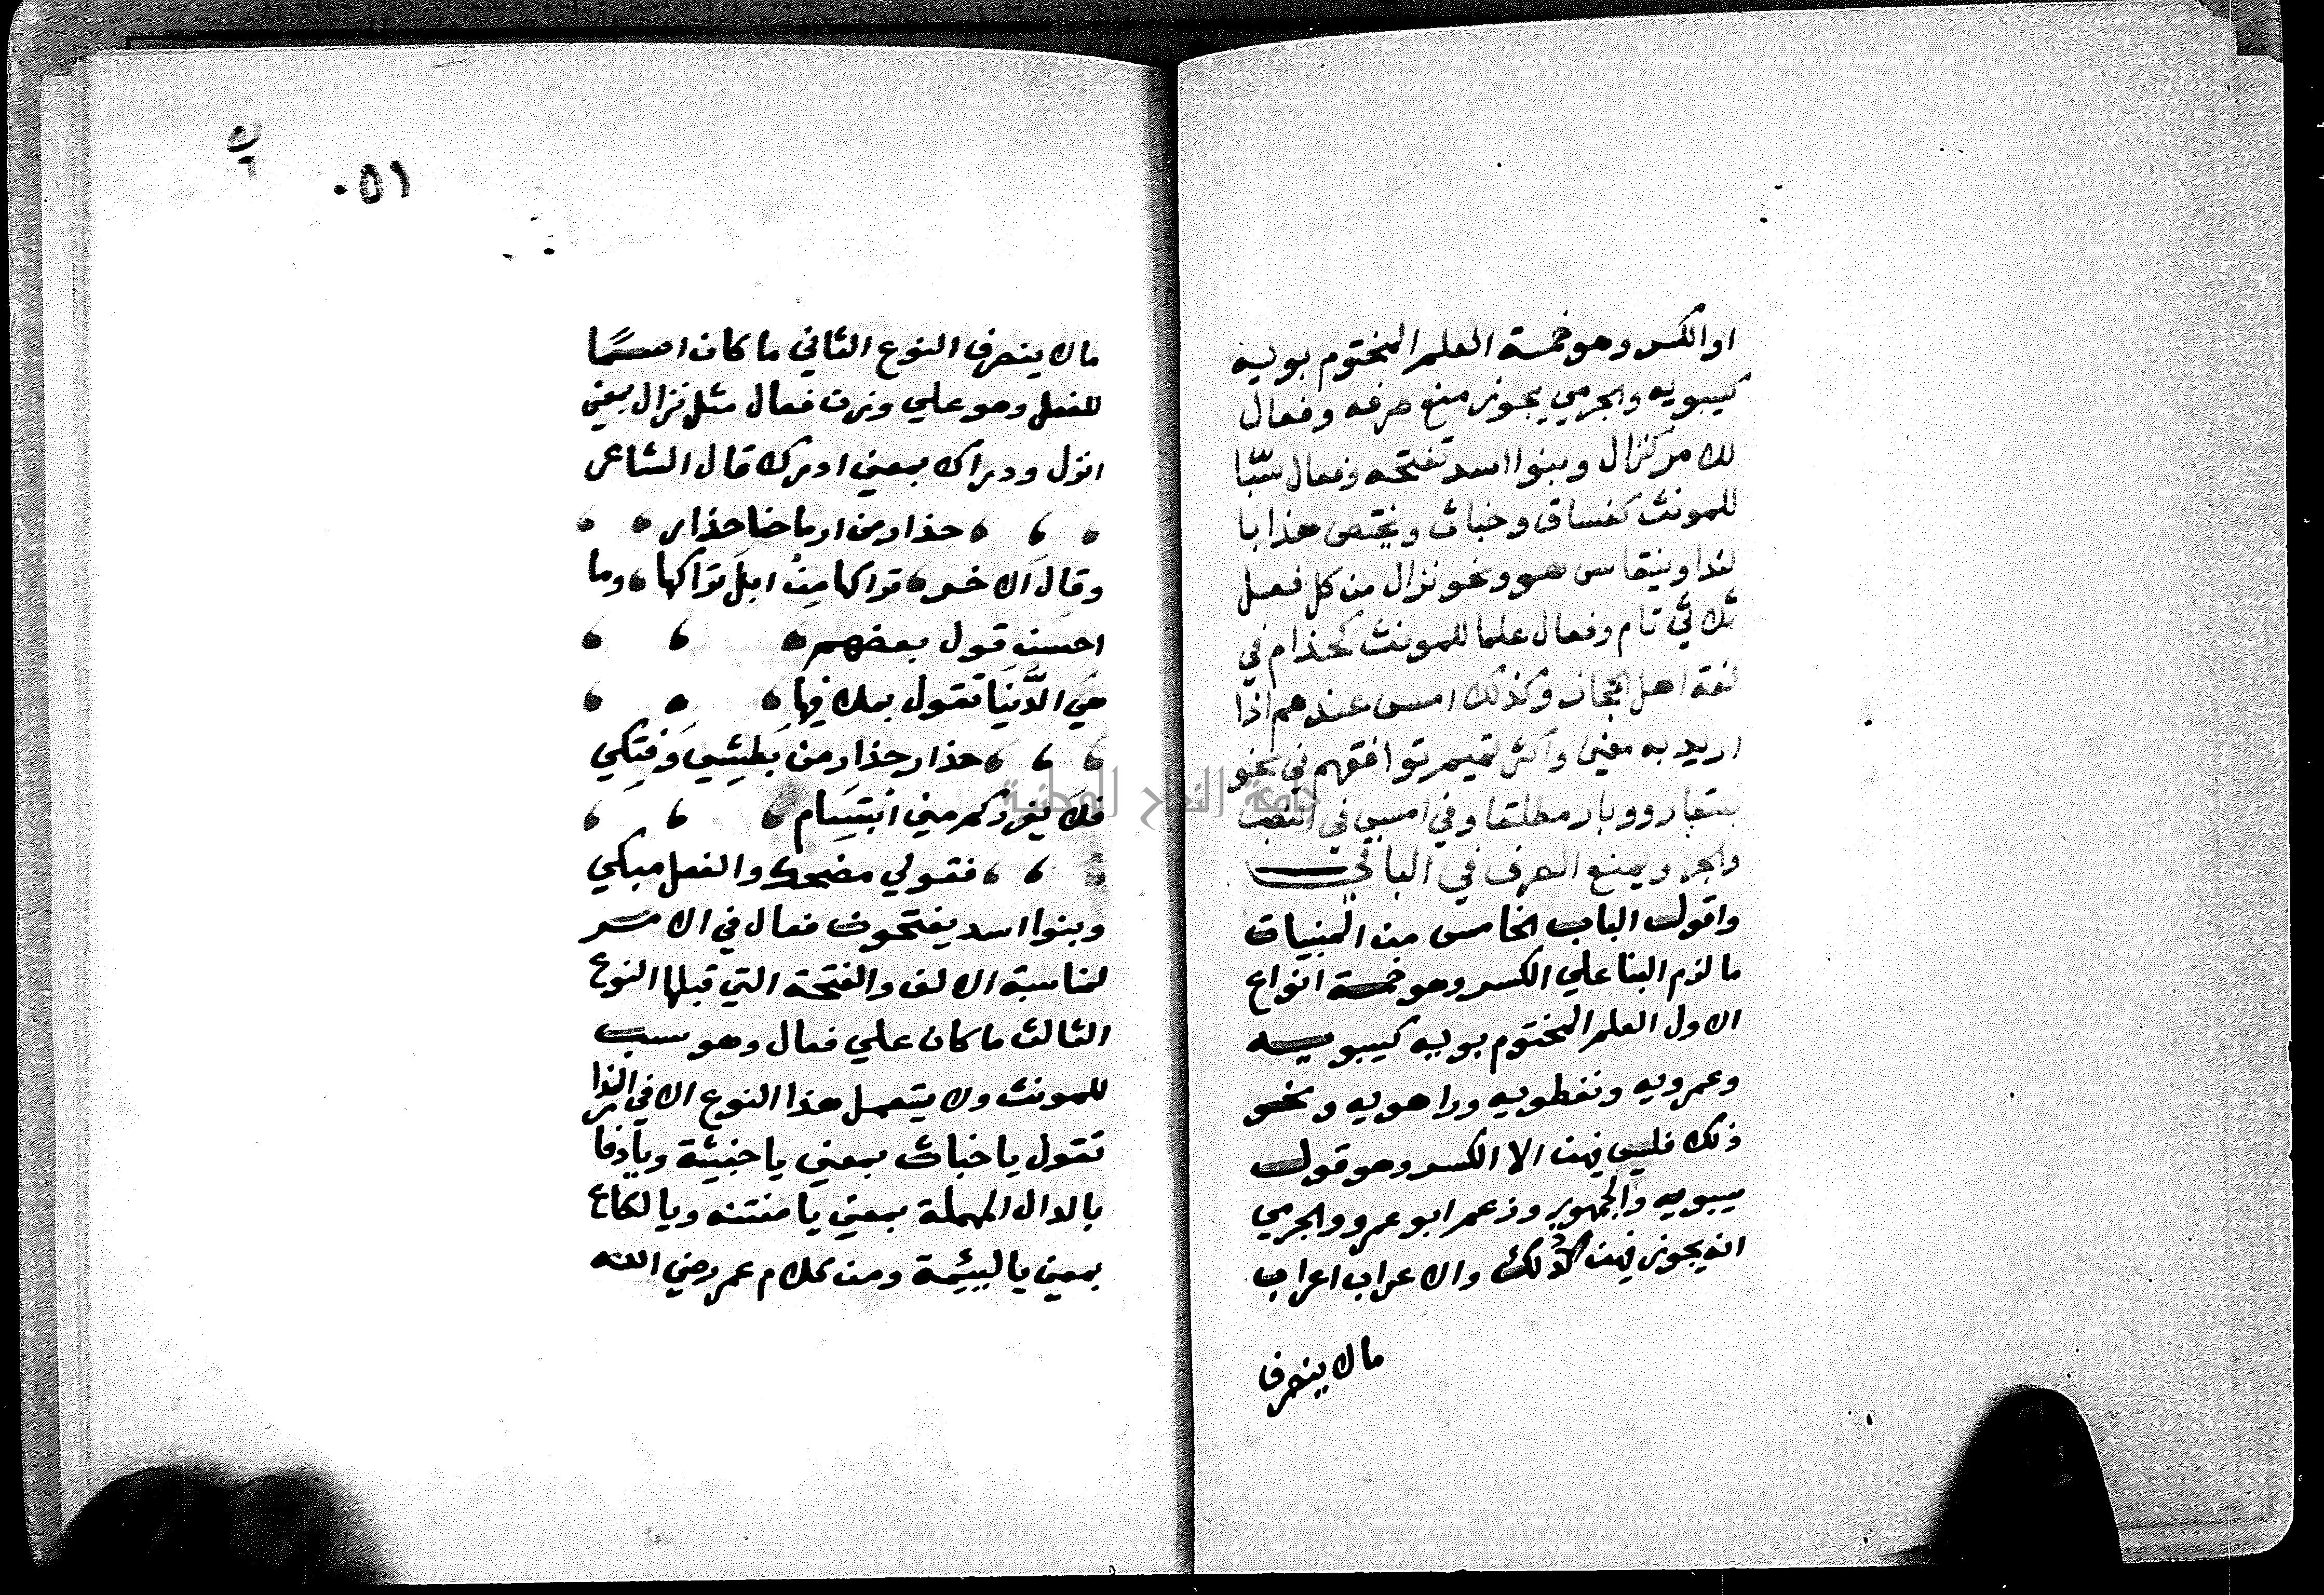 او الكسر وهو خمسة العلم المختوم بويه
كيبويه والجرمي يجوز منع صرفه وفعال
للامر كنزال وبنوا اسد تفتحه وفعال سبّا
للمونث كفساق وخباث ويختص هذا با
لندا وينقاس هو ونحو نزال من كل فعل
ثلاثي تام وفعال علما للمونث كحذام في
لغة اهل الحجاز وكذلك امس عندهم اذا
اريد به معين واكثر تميم توافقهم في نحو
سفار ووبار مطلقا وفي امس في النصب
والجر ويمنع الصرف في الباقي
واقول الباب الخامس من المبنيات
ما لزم البنا علي الكسر وهو خمسة انواع
الاول العلم المختوم بويه كيبويه
وعمرويه ونفطويه وراهويه ونحو
ذلك فليس فيهن الا الكسر وهو قول
سيبويه والجمهور وزعم ابو عمرو والجرمي
انه يجوز فيهن ذلك والاعراب اعراب
ما لا ينصرف
٠٥١
ما لا ينصرف النوع الثاني ما كان اسمًا
للفعل وهو علي وزن فعال مثل نزال بمعني
انزل ودراك بمعني ادرك قال الشاعر
حذار من ارماحنا حذار
وقال الاخر تراكها من ابل تراكها وما
احسن قول بعضهم
هي الدّنيا تقول بملا فيها
حذار حذار من بطشي وفتكي
فلا يغرركم مني ابتسام
فقولي مضحك والفعل مبكي
وبنوا اسد يفتحون فعال في الامر
لمناسبة الالف والفتحة التي قبلها النوع
الثالث ما كان علي فعال وهو سب
للمونث ولا يتعمل هذا النوع الا في الندا
تقول يا خباث بمعني يا خبيثة ويا دفا
بالدال المهملة بمعني يا منتنه ويا لكاع
بمعني يا لييئمة ومن كلام عمر رضي الله
جامعة النجاح الوطنية